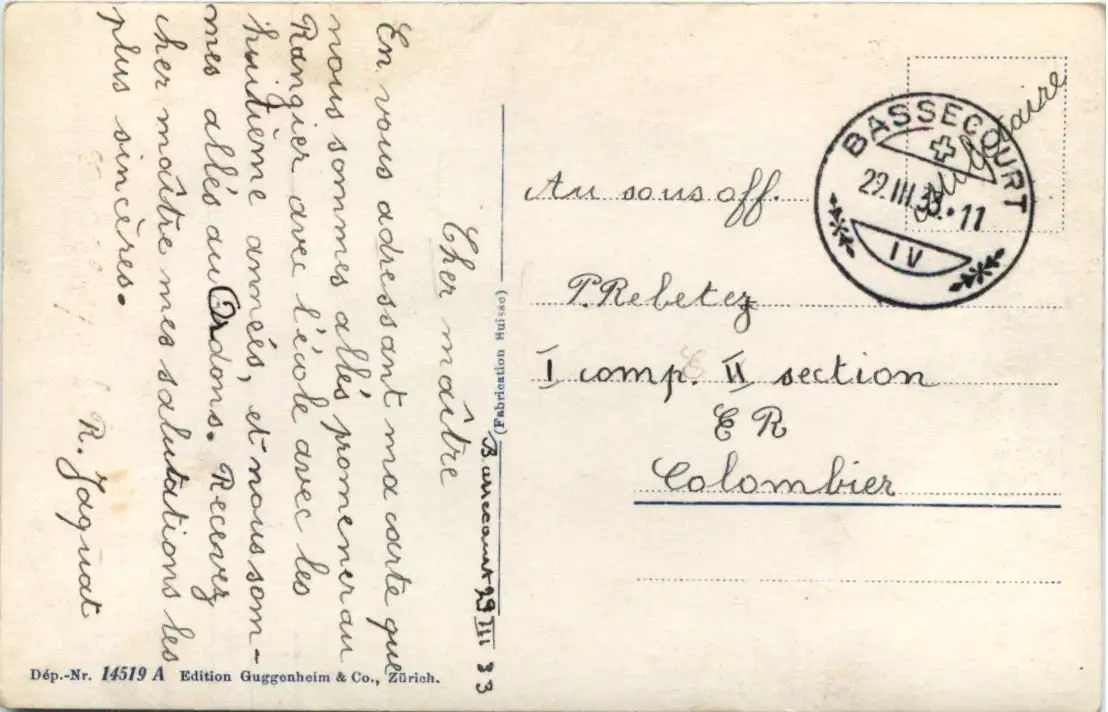 Bassecourt 29 III 33
Cher maître
En vous adressant ma carte que
nous sommes allés promener au
Rangier avec l'école avec les
huitième annnés, et nous som-
mes allés au Ordons. Recevez
cher maître mes salutations les
plus sincères.
R. Jaquat
Dép.-Nr. 14519 A Edition Guggenheim & Co., Zürich.
(Fabrication Huisse)
militaire
BASSECOURT
29.III.33.11
IV
Au sous off.
P. Rebetez
I comp. II section
E R
Colombier